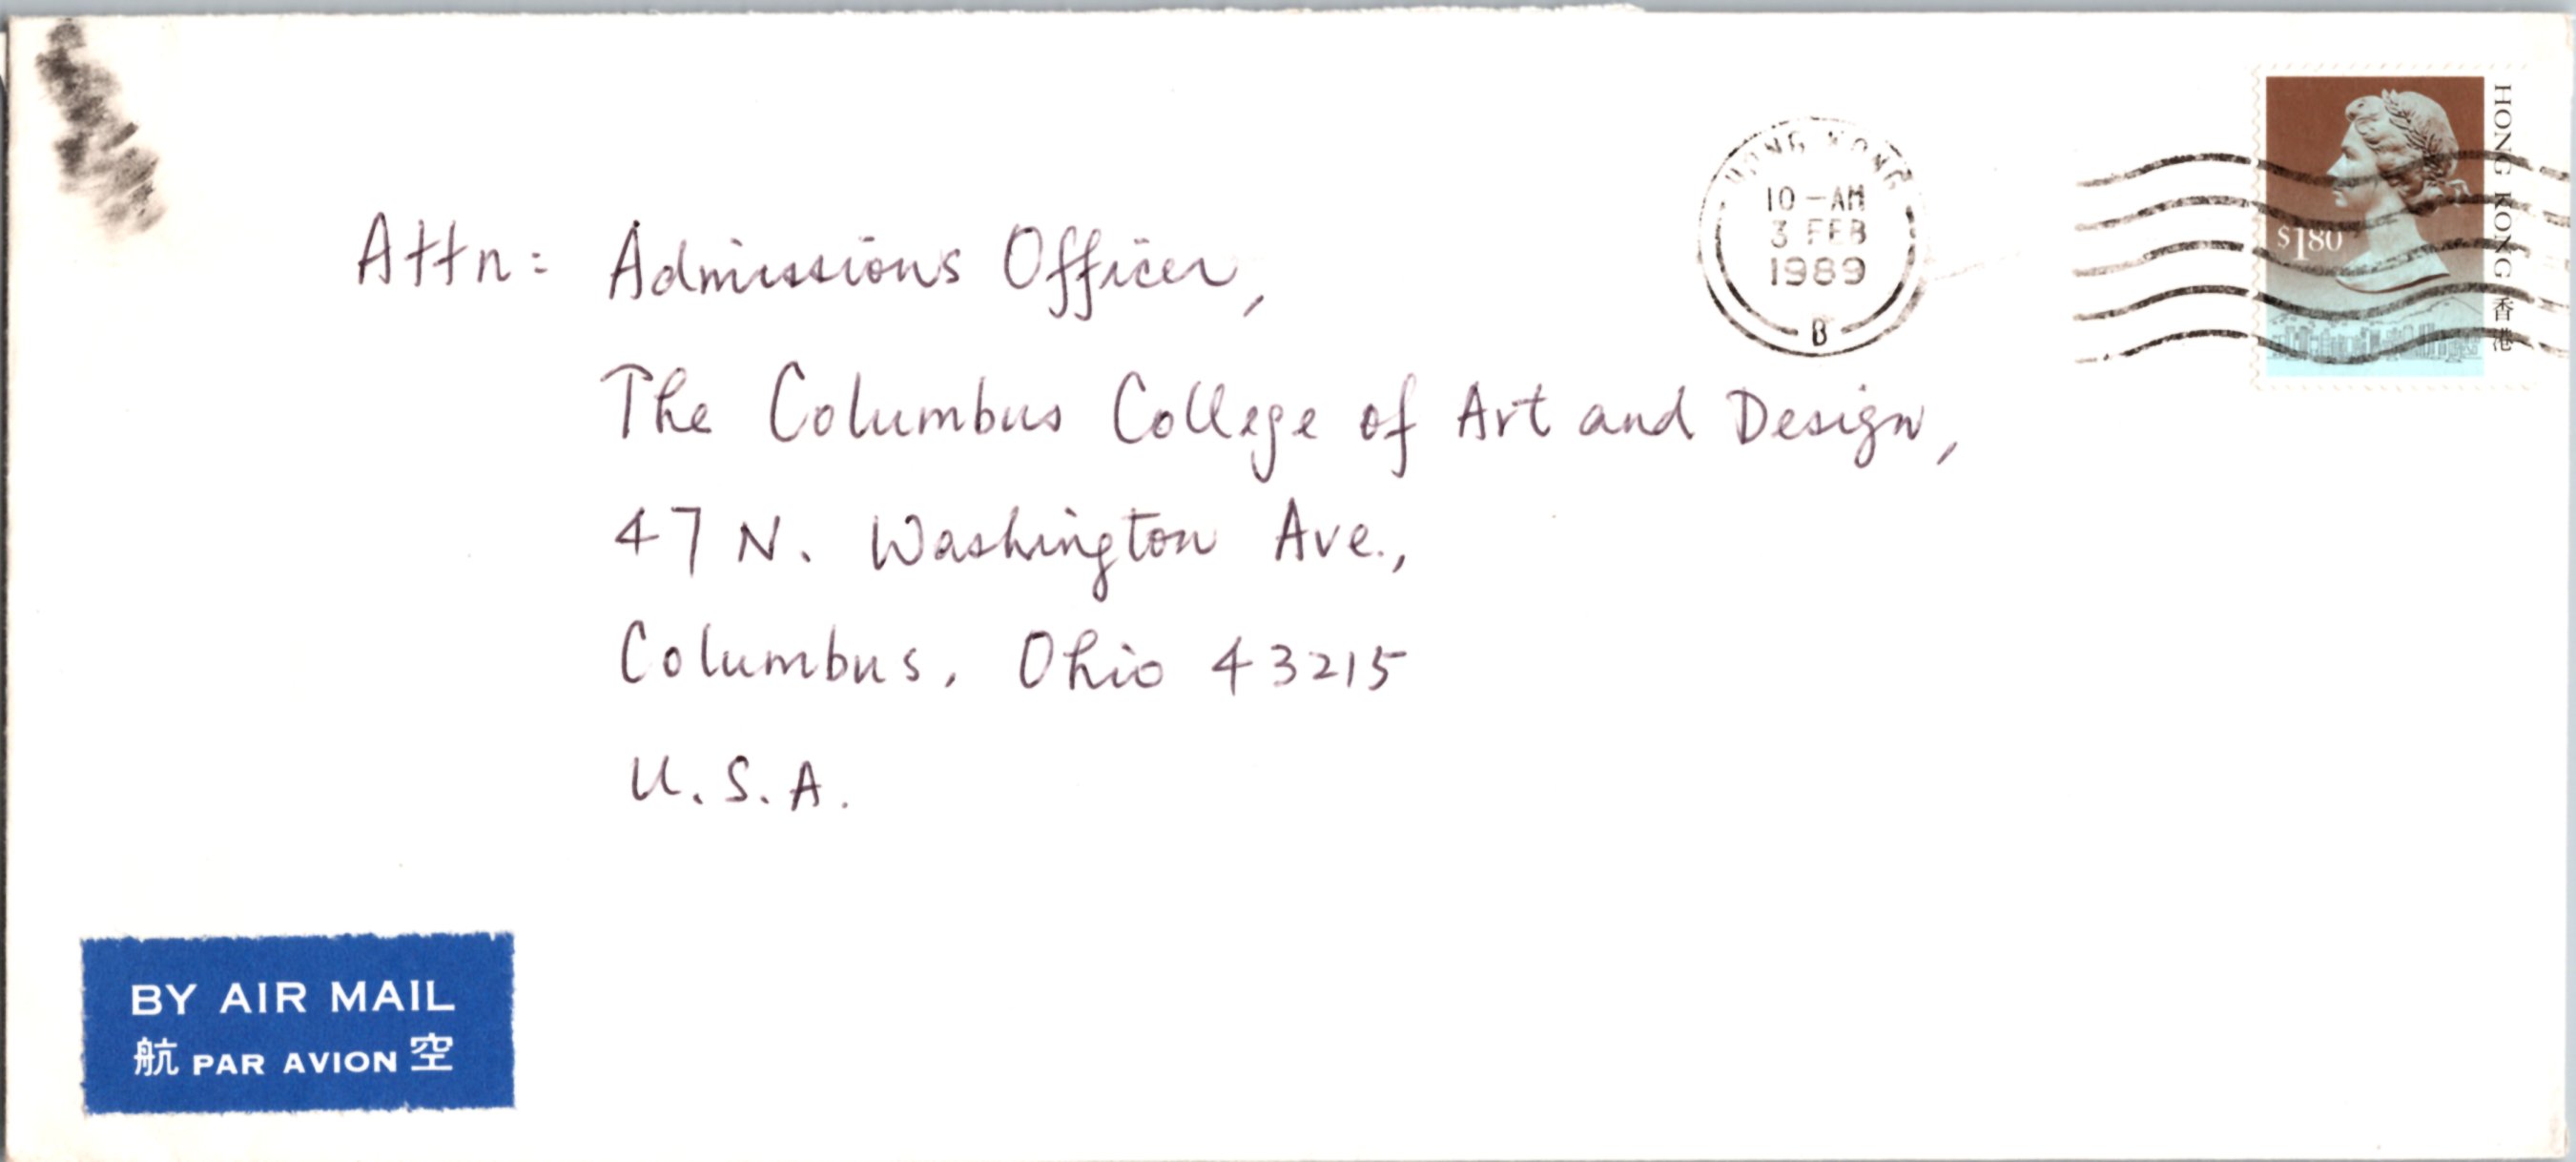 Attn: Admissions Officer,
The Columbus College of Art and Design,
47 N. Washington Ave.,
Columbus, Ohio 43215
U.S.A.
HONG KONG
10-AM
3 FEB
1989
B
$1.80
HONG KONG 香港
BY AIR MAIL
航 PAR AVION 空